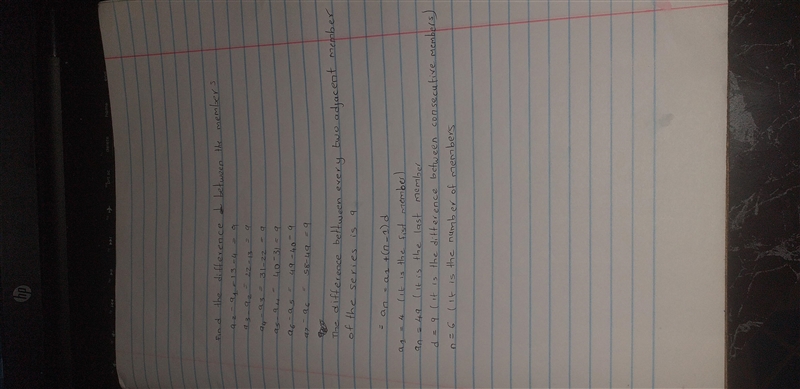 Find the difference between the members
a₂ - a₁ = 13 - 4 = 9
a₃ - a₂ = 22 - 13 = 9
a₄ - a₃ = 31 - 22 = 9
a₅ - a₄ = 40 - 31 = 9
a₆ - a₅ = 49 - 40 = 9
a₇ - a₆ = 58 - 49 = 9
The difference between every two adjacent member
of the series is 9
= an = a₁ + (n-1) d
a₁ = 4 (it is the first member)
an = 49 (it is the last member
d = 9 (it is the difference between consecutive members)
n = 6 (it is the number of members
hp